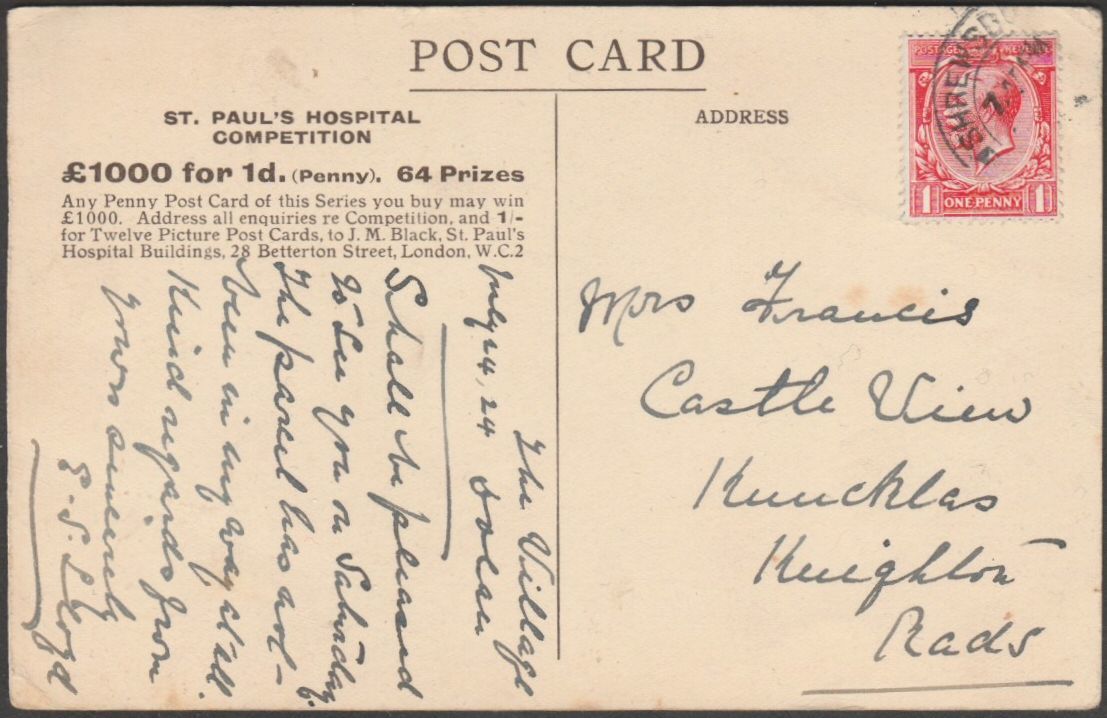 POST CARD
ST. PAUL'S HOSPITAL
COMPETITION
£1000 for 1d. (Penny). 64 Prizes
Any Penny Post Card of this Series you buy may win
£1000. Address all enquiries re Competition, and 1/-
for Twelve Picture Post Cards, to J. M. Black, St. Paul's
Hospital Buildings, 28 Betterton Street, London, W.C.2
ADDRESS
SHREWSBU
POSTAGE REVENUE
1 ONE PENNY 1
The Village
July 24, 24
Shall be pleased
to see you on Saturday.
The parcel has not
been in my way at all.
Kind regards from
yours sincerely
E. S. Lloyd
Mrs Francis
Castle View
Knucklas
Knighton
Rads